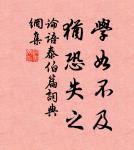 學如不及
猶恐失之
論語泰伯篇詞典
網集